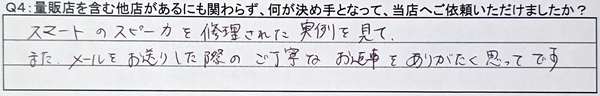 Q4：量販店を含む他店があるにも関わらず、何が決め手となって、当店へご依頼いただけましたか？
スマートのスピーカを修理された実例を見て、
また、メールをお送りした際のご丁寧なお返事をありがたく思ってです